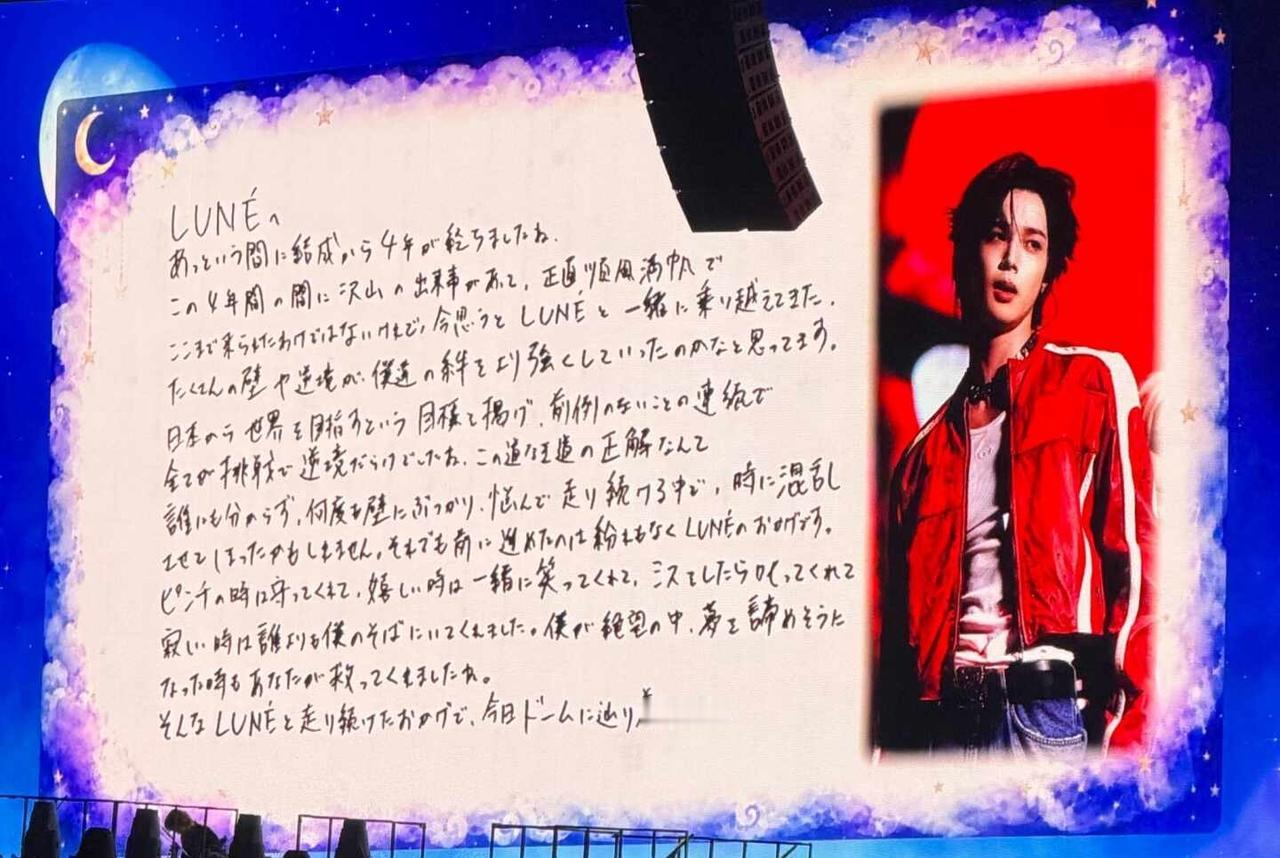 LUNÉへ
あっという間に結成から4年が経ちましたね.
この4年間の間に沢山の出来事があって,正直順風満帆で
ここまで来られたわけではないけれど,今思うとLUNÉと一緒に乗り越えてきた,
たくさんの壁や逆境が,僕達の絆をより強くしていったのかなと思ってます。
日本から世界を目指すという目標を掲げ,前例のないことの連続で
全てが挑戦で逆境だらけでしたね.この道な王道の正解なんて
誰にも分からず,何度も壁にぶつかり,悩んで走り続ける中で,時に混乱
させてしまったかもしれません。それでも前に進めたのは紛れもなくLUNÉのおかげです。
ピンチの時は守ってくれて,嬉しい時は一緒に笑ってくれて,ミスをしたら叱ってくれて
寂しい時は誰よりも僕のそばにいてくれました。僕が絶望の中,夢を諦めそうに
なった時もあなたが救ってくれましたね。
そんなLUNÉと走り続けたおかげで,今日ドームに辿り